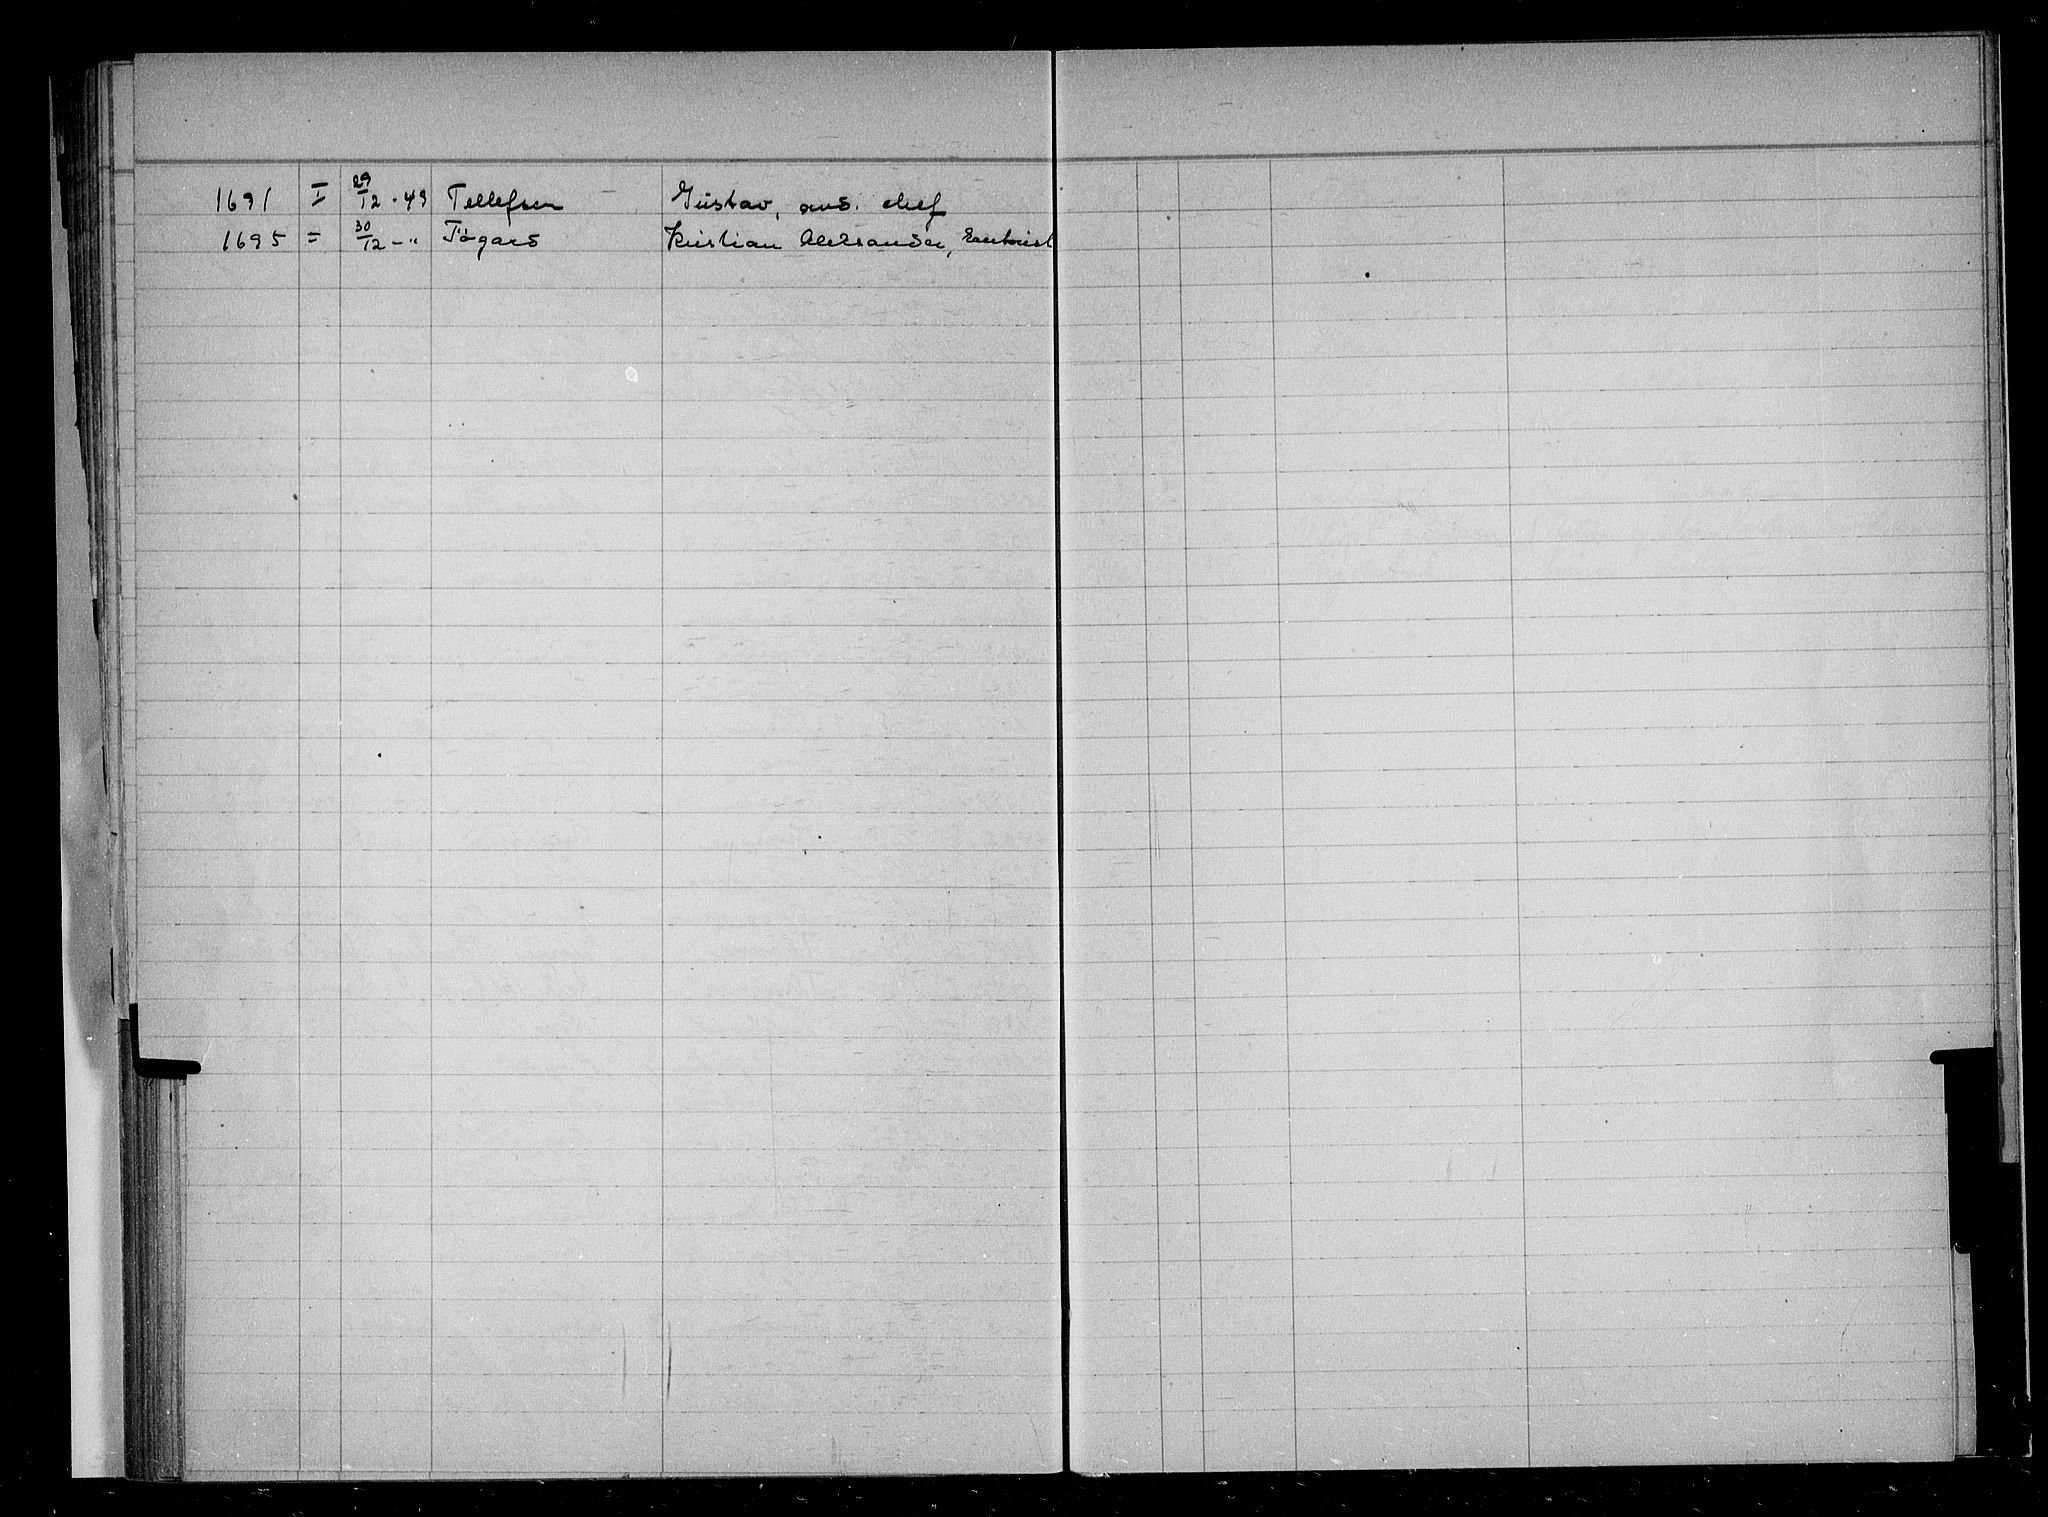 1691 I 29/12.49 Tellefsen Gustav, avd. chef
1695 = 30/12 - " Tøgard Kristian Aleksander,